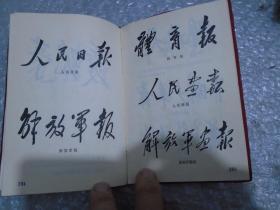 人民日報
人民日报
解放軍報
解放军报
體育報
体育报
人民畫報
人民画报
解放軍畫報
解放军画报